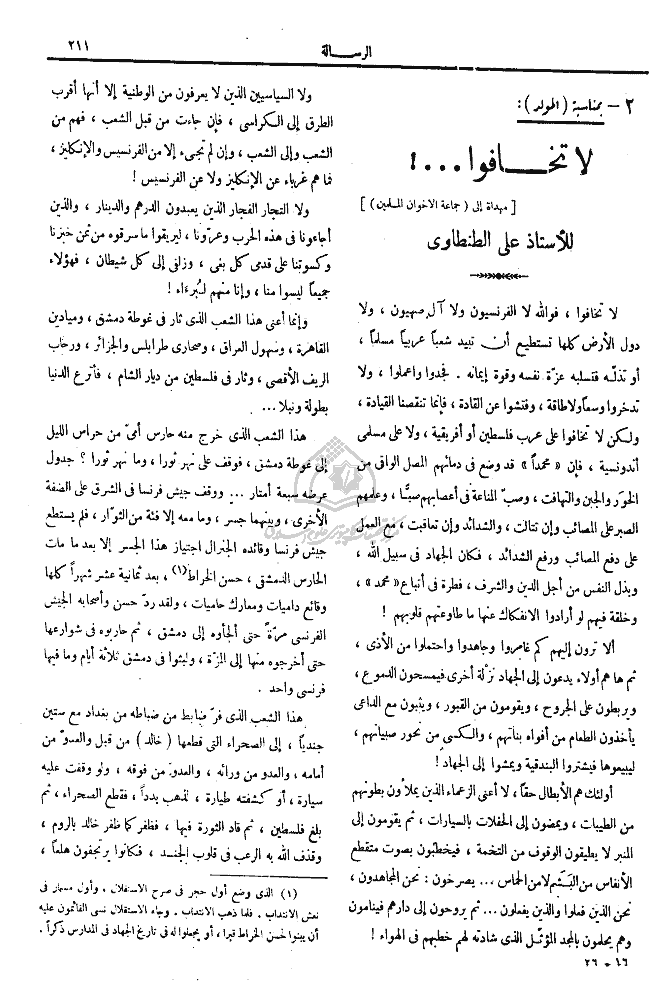 ٢١١
الرسالة
٢ – بمناسبة (المولد):
لا تخافوا...!
[مهداة إلى (جماعة الاخوان المسلمين)]
للأستاذ على الطنطاوى
لا تخافوا ، فوالله لا الفرنسيون ولا آل صهيون ، ولا
دول الأرض كلها تستطيع أن تبيد شعباً عربياً مسلماً ،
أو تذلّه فتسلبه عزّة نفسه وقوة إيمانه . فجدوا واعملوا ، ولا
تدخروا وسعاً ولا طاقة ، وفتشوا عن القادة ، فإنما تنقصنا القيادة ،
ولكن لا تخافوا على عرب فلسطين أو أفريقية ، ولا على مسلمى
أندونسية ، فإن « محمداً » قد وضع فى دمائهم المصل الواقى من
الخور والجبن والتهافت ، وصبّ المناعة فى أعصابهم صبًّا ، وعلمهم
الصبر على المصائب وإن تتالت ، والشدائد وإن تعاقبت ، مع العمل
على دفع المصائب ورفع الشدائد ، فكان الجهاد فى سبيل الله ،
وبذل النفس من أجل الدين والشرف ، فطرة فى أتباع « محمد » ،
وخلقة فيهم لو أرادوا الانفكاك عنها ما طاوعتهم قلوبهم !
ألا ترون إليهم كم غامروا وجاهدوا واحتملوا من الأذى ،
ثم ها هم أولاء يدعون إلى الجهاد نزلة أخرى فيمسحون الدموع ،
ويربطون على الجروح ، ويقومون من القبور ، ويثبون مع الداعى
يأخذون الطعام من أفواه بناتهم ، والكسى من نحور صبياتهم ،
ليبيعوها فيشتروا البندقية ويمشوا إلى الجهاد !
أولئك هم الأبطال حقاً ، لا أعنى الزعماء الذين يملأون بطونهم
من الطيبات ، ويمضون إلى الحفلات بالسيارات ، ثم يقومون إلى
المنبر لا يطيقون الوقوف من التخمة ، فيخطبون بصوت متقطع
الأنفاس من البشم لا من الحماس ... يصرخون : نحن المجاهدون ،
نحن الذين فعلوا والذين يفعلون ... ثم يروحون إلى دارهم فينامون
وهم يحلمون بالمجد المؤثل الذى شادته لهم خطبهم فى الهواء !
١٦ - ٢٦
ولا السياسيين الذين لا يعرفون من الوطنية إلا أنها أقرب
الطرق إلى الكراسى ، فإن جاءت من قبل الشعب ، فهم من
الشعب وإلى الشعب ، وإن لم تجىء إلا من الفرنسيس والإنكليز ،
فما هم غرباء عن الإنكليز ولا عن الفرنسيس !
ولا التجار الفجار الذين يعبدون الدرهم والدينار ، والذين
أجاعونا فى هذه الحرب وعرّونا ، ليريقوا ما سرقوه من ثمن خبزنا
وكسوتنا على قدمى كل بغى ، وزلفى إلى كل شيطان ، فهؤلاء
جميعاً ليسوا منا ، وإنا منهم لبُرءاء !
وإنما أعنى هذا الشعب الذى ثار فى غوطة دمشق ، وميادين
القاهرة ، وسهول العراق ، وصحارى طرابلس والجزائر ، ورحاب
الريف الأقصى ، وثار فى فلسطين من ديار الشام ، فأترع الدنيا
بطولة ونبلا ...
هذا الشعب الذى خرج منه حارس أمىّ من حراس الليل
إلى غوطة دمشق ، فوقف على نهر ثورا ، وما نهر ثورا ؟ جدول
عرضه سبعة أمتار ... ووقف جيش فرنسا فى الشرق على الضفة
الأخرى ، وبينهما جسر ، وما معه إلا فئة من الثوار ، فلم يستطع
جيش فرنسا وقائده الجنرال اجتياز هذا الجسر إلا بعد ما مات
الحارس الدمشقى ، حسن الخراط(١) ، بعد ثمانية عشر شهراً كلها
وقائع داميات ومعارك حاميات ، ولقد ردّ حسن وأصحابه الجيش
الفرنسى مرّة حتى ألجأوه إلى دمشق ، ثم حاربوه فى شوارعها
حتى أخرجوه منها إلى المزّة ، ولبثوا فى دمشق ثلاثة أيام وما فيها
فرنسى واحد .
هذا الشعب الذى فرّ ضابط من ضباطه من بغداد مع ستين
جندياً ، إلى الصحراء التى قطعها (خالد) من قبل والعدوّ من
أمامه ، والعدو من ورائه ، والعدو من فوقه ، ولو وقفت عليه
سيارة ، أو كشفته طيارة ، لذهب بدداً ، فقطع الصحراء ، ثم
بلغ فلسطين ، ثم قاد الثورة فيها ، فظفر كما ظفر خالد بالروم ،
وقذف الله به الرعب فى قلوب الجند ، فكانوا يرتجفون هلعاً ،
(١) الذى وضع أول حجر فى صرح الاستقلال . وأول مسمار فى
نعش الانتداب . فلما ذهب الانتداب . وجاء الاستقلال نسى القائمون عليه
أن يبنوا لحسن الخراط قبرا ، أو يجعلوا له فى تاريخ الجهاد فى المدارس ذكراً .